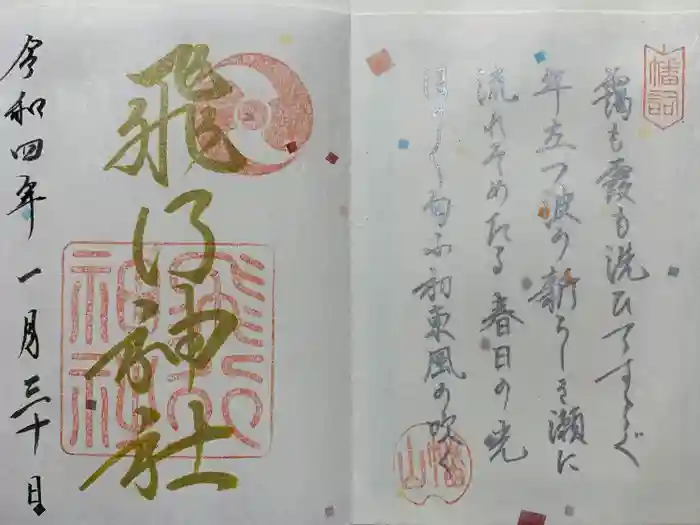 靄も霞も洗ひてすすぐ
年立つ波の新らしき瀬に
流れそめたる 春日の光
匂ふ初東風の吹く
飛行神社
飛行神社
令和四年一月三十日